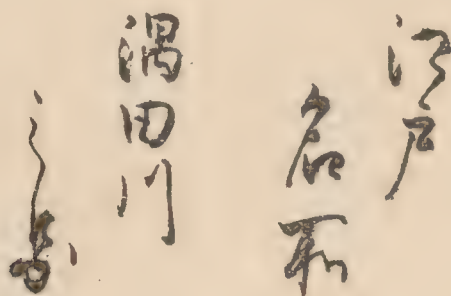 江戸
名所
隅田川
之図